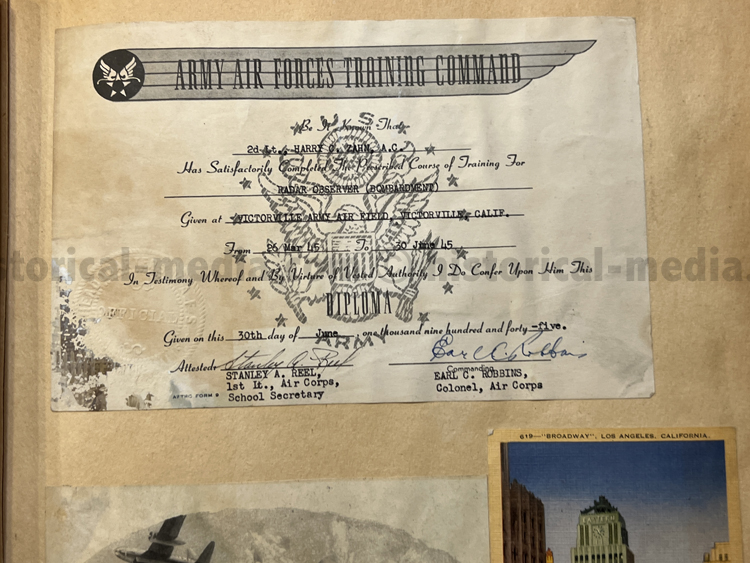 ARMY AIR FORCES TRAINING COMMAND
U S
Be It Known That
2d Lt., HARRY C. ZAHN, A.C.
Has Satisfactorily Completed The Prescribed Course of Training For
RADAR OBSERVER (BOMBARDMENT)
Given at VICTORVILLE ARMY AIR FIELD, VICTORVILLE, CALIF.
From 26 Mar 45 To 30 June 45
In Testimony Whereof and By Virtue of Vested Authority I Do Confer Upon Him This
DIPLOMA
Given on this 30th day of June one thousand nine hundred and forty -five.
ARMY
Attested: Stanley A. Reel Earl C. Robbins
Commanding
STANLEY A. REEL,
1st Lt., Air Corps,
School Secretary
EARL C. ROBBINS,
Colonel, Air Corps
AFTRC FORM
619—"BROADWAY", LOS ANGELES, CALIFORNIA.
EASTERN
historical-media